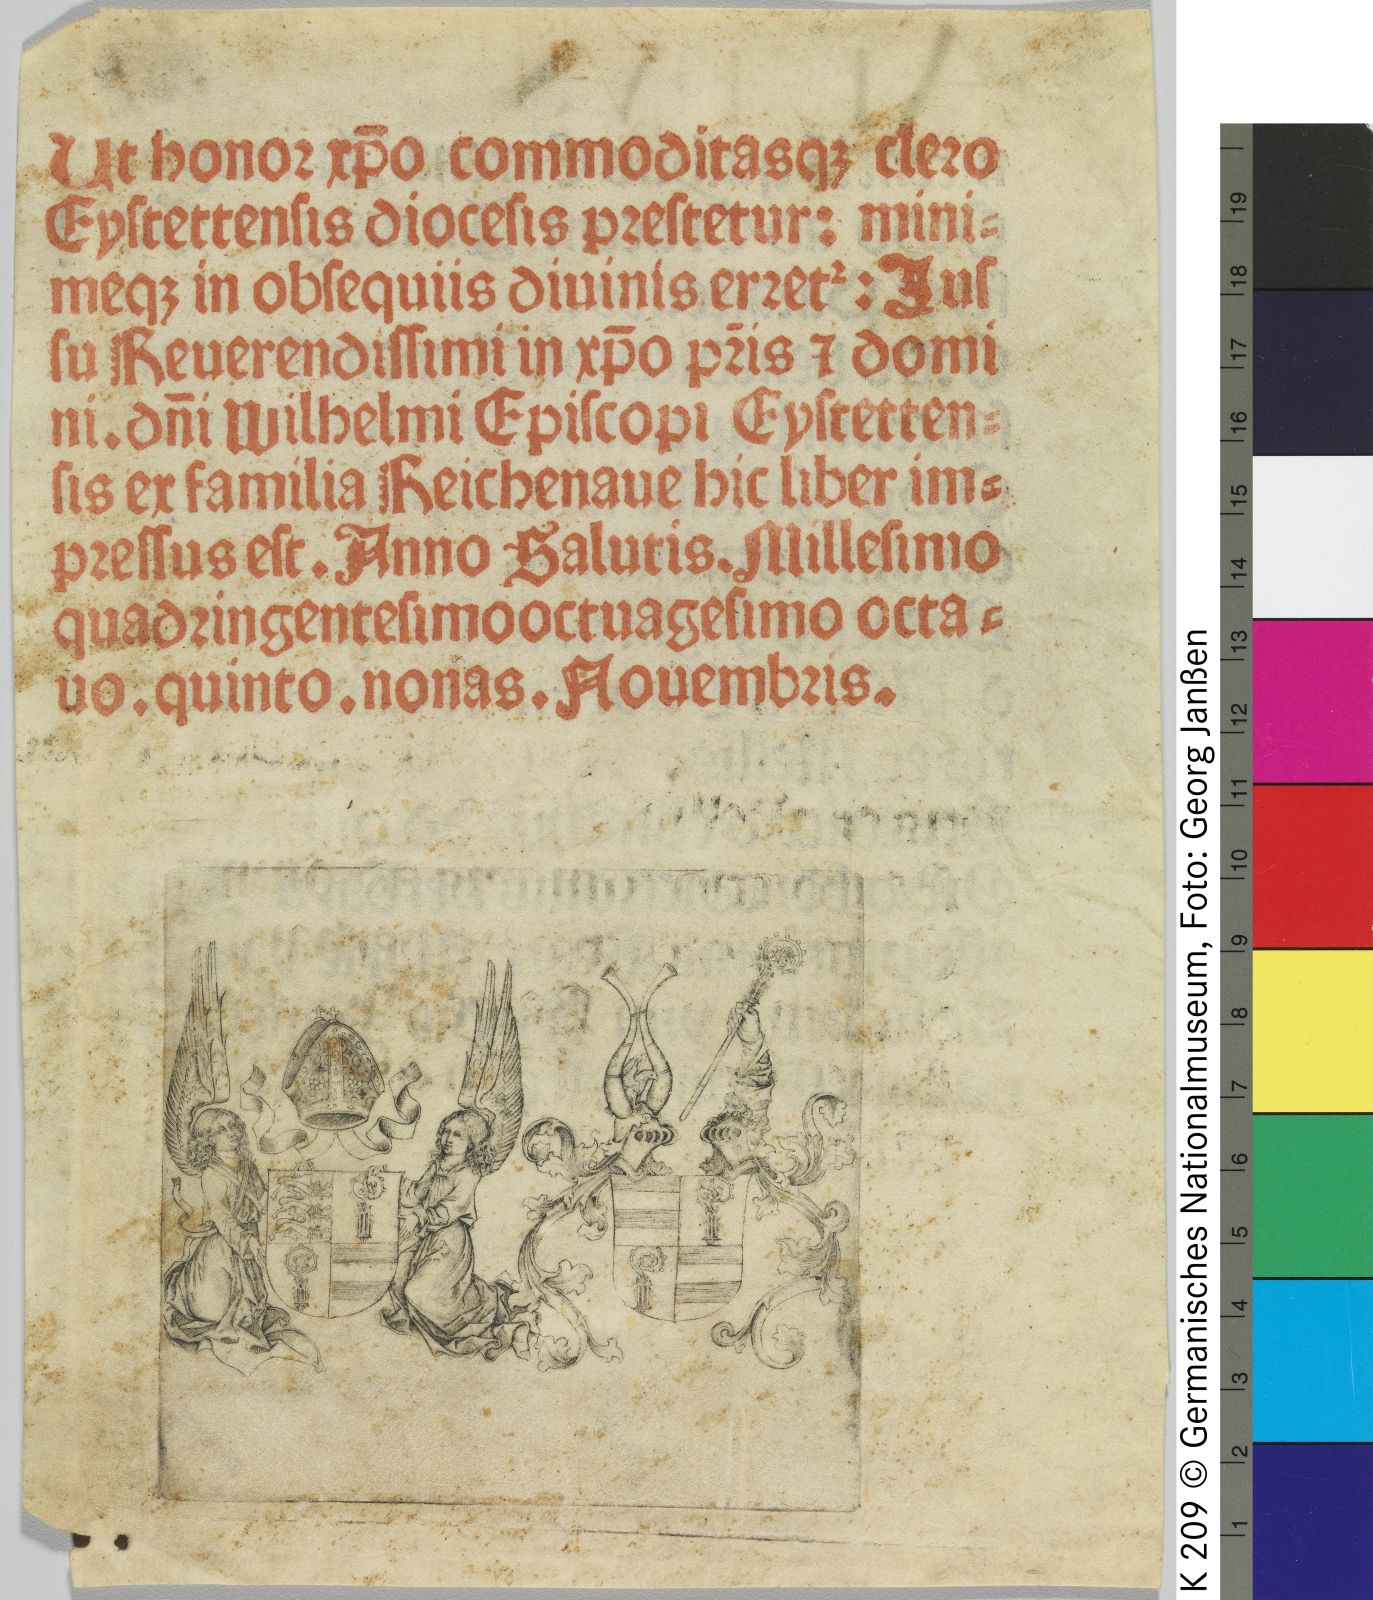 Ut honor xp̄o commoditasqꝫ clero
Eyſtettenſis dioceſis preſtetur: mini⸗
meqꝫ in obſequiis diuinis erret²: Iuſ
ſu Reuerendiſſimi in xp̄o pr̄is ⁊ domi
ni. dn̄i Wilhelmi Epiſcopi Eyſtetten⸗
ſis ex familia Reichenaue hic liber im⸗
preſſus eſt. Anno Salutis. Milleſimo
quadringenteſimooctuageſimo octa⸗
uo. quinto. nonas. Nouembris.
K 209 © Germanisches Nationalmuseum, Foto: Georg Janßen
19
18
17
16
15
14
13
12
11
10
9
8
7
6
5
4
3
2
1